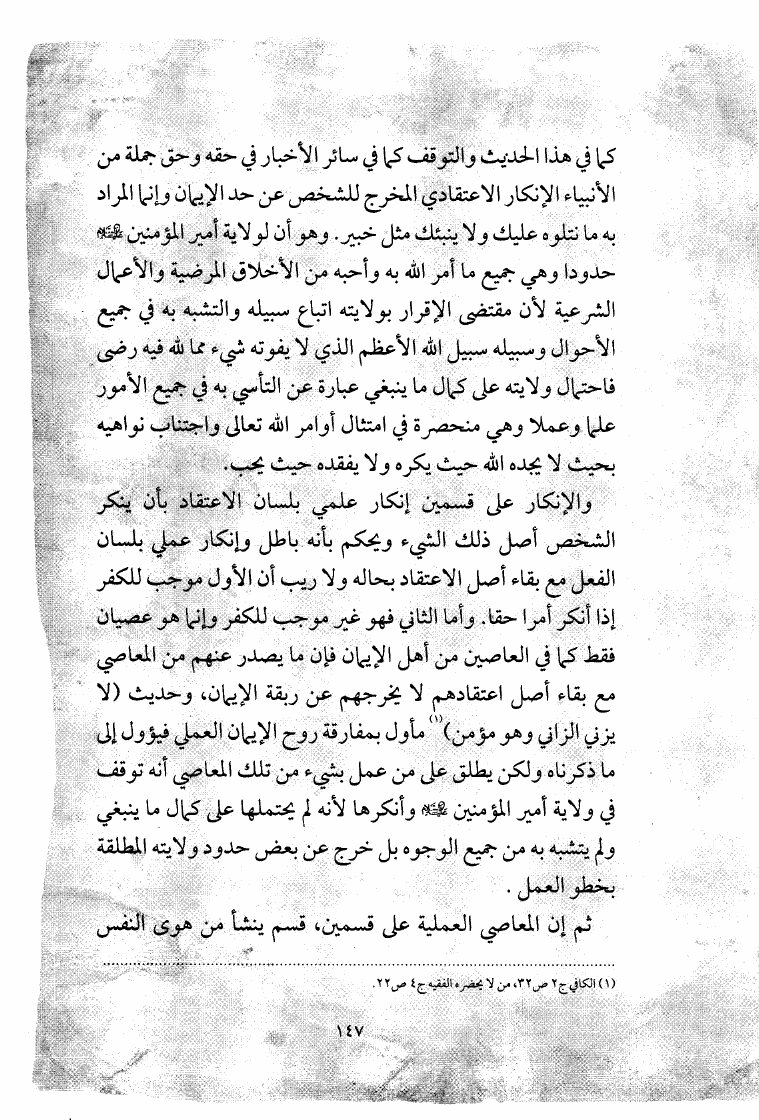 كما في هذا الحديث والتوقف كما في سائر الأخبار في حقه وحق جملة من
الأنبياء الإنكار الاعتقادي المخرج للشخص عن حد الإيمان وإنما المراد
به ما نتلوه عليك ولا ينبئك مثل خبير. وهو أن لولاية أمير المؤمنين
حدودا وهي جميع ما أمر الله به وأحبه من الأخلاق المرضية والأعمال
الشرعية لأن مقتضى الإقرار بولايته اتباع سبيله والتشبه به في جميع
الأحوال وسبيله سبيل الله الأعظم الذي لا يفوته شيء مما لله فيه رضى
فاحتمال ولايته على كمال ما ينبغي عبارة عن التأسي به في جميع الأمور
علما وعملا وهي منحصرة في امتثال أوامر الله تعالى واجتناب نواهيه
بحيث لا يجده الله حيث يكره ولا يفقده حيث يحب.
والإنكار على قسمين إنكار علمي بلسان الاعتقاد بأن ينكر
الشخص أصل ذلك الشيء ويحكم بأنه باطل وإنكار عملي بلسان
الفعل مع بقاء أصل الاعتقاد بحاله ولا ريب أن الأول موجب للكفر
إذا أنكر أمرا حقا. وأما الثاني فهو غير موجب للكفر وإنما هو عصيان
فقط كما في العاصين من أهل الإيمان فإن ما يصدر عنهم من المعاصي
مع بقاء أصل اعتقادهم لا يخرجهم عن ربقة الإيمان، وحديث (لا
يزني الزاني وهو مؤمن)(١) مأول بمفارقة روح الإيمان العملي فيؤول إلى
ما ذكرناه ولكن يطلق على من عمل بشيء من تلك المعاصي أنه توقف
في ولاية أمير المؤمنين وأنكرها لأنه لم يحتملها على كمال ما ينبغي
ولم يتشبه به من جميع الوجوه بل خرج عن بعض حدود ولايته المطلقة
بخطو العمل .
ثم إن المعاصي العملية على قسمين، قسم ينشأ من هوى النفس
(١) الكافي ج٢ ص٣٢، من لا يحضره الفقيه ج٤ ص٢٢.
١٤٧